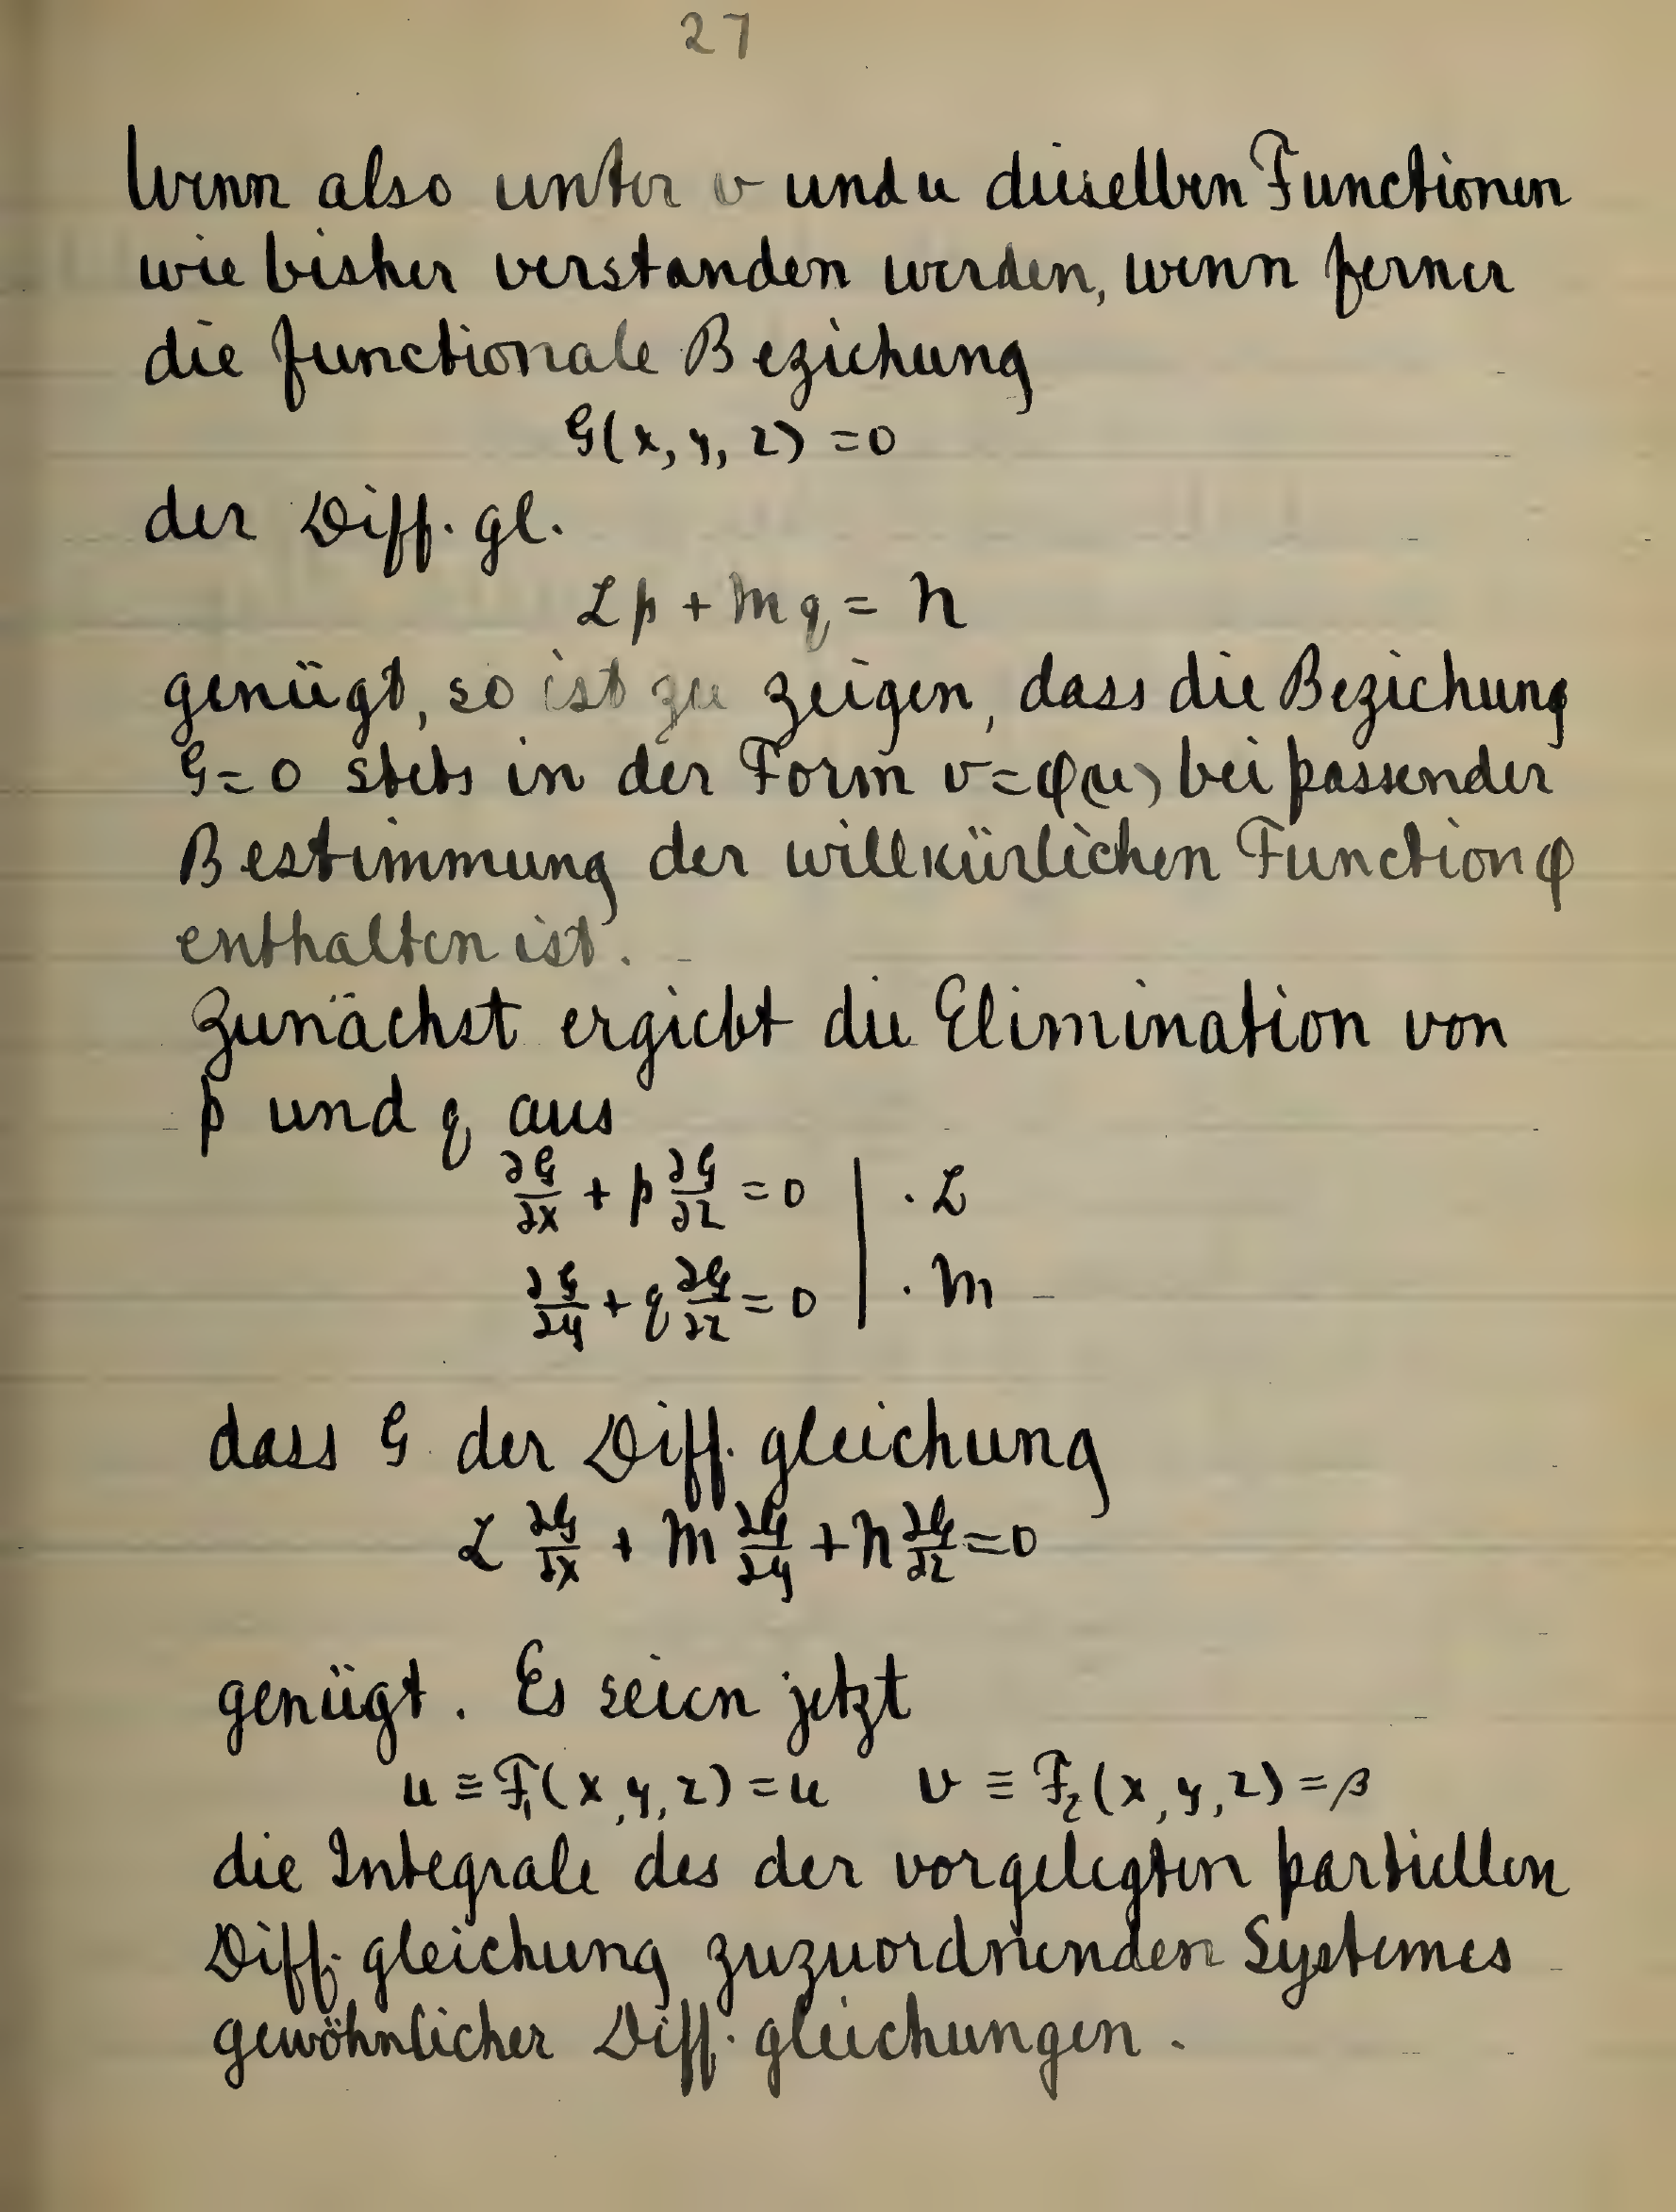 27
Wenn also unter v und u dieselben Functionen
wie bisher verstanden werden, wenn ferner
die functionale Beziehung
G(x, y, z) = 0
der Diff. gl.
Lp + Mq = N
genügt, so ist zu zeigen, dass die Beziehung
G = 0 stets in der Form v = φ(u) bei passender
Bestimmung der willkürlichen Function φ
enthalten ist.
Zunächst ergiebt die Elimination von
p und q aus
∂G/∂x + p ∂G/∂z = 0 | · L
∂G/∂y + q ∂G/∂z = 0 | · M
dass G der Diff. gleichung
L ∂G/∂x + M ∂G/∂y + N ∂G/∂z = 0
genügt. Es seien jetzt
u ≡ F₁(x, y, z) = u v ≡ F₂(x, y, z) = β
die Integrale des der vorgelegten partiellen
Diff. gleichung zuzuordnenden Systemes
gewöhnlicher Diff. gleichungen.